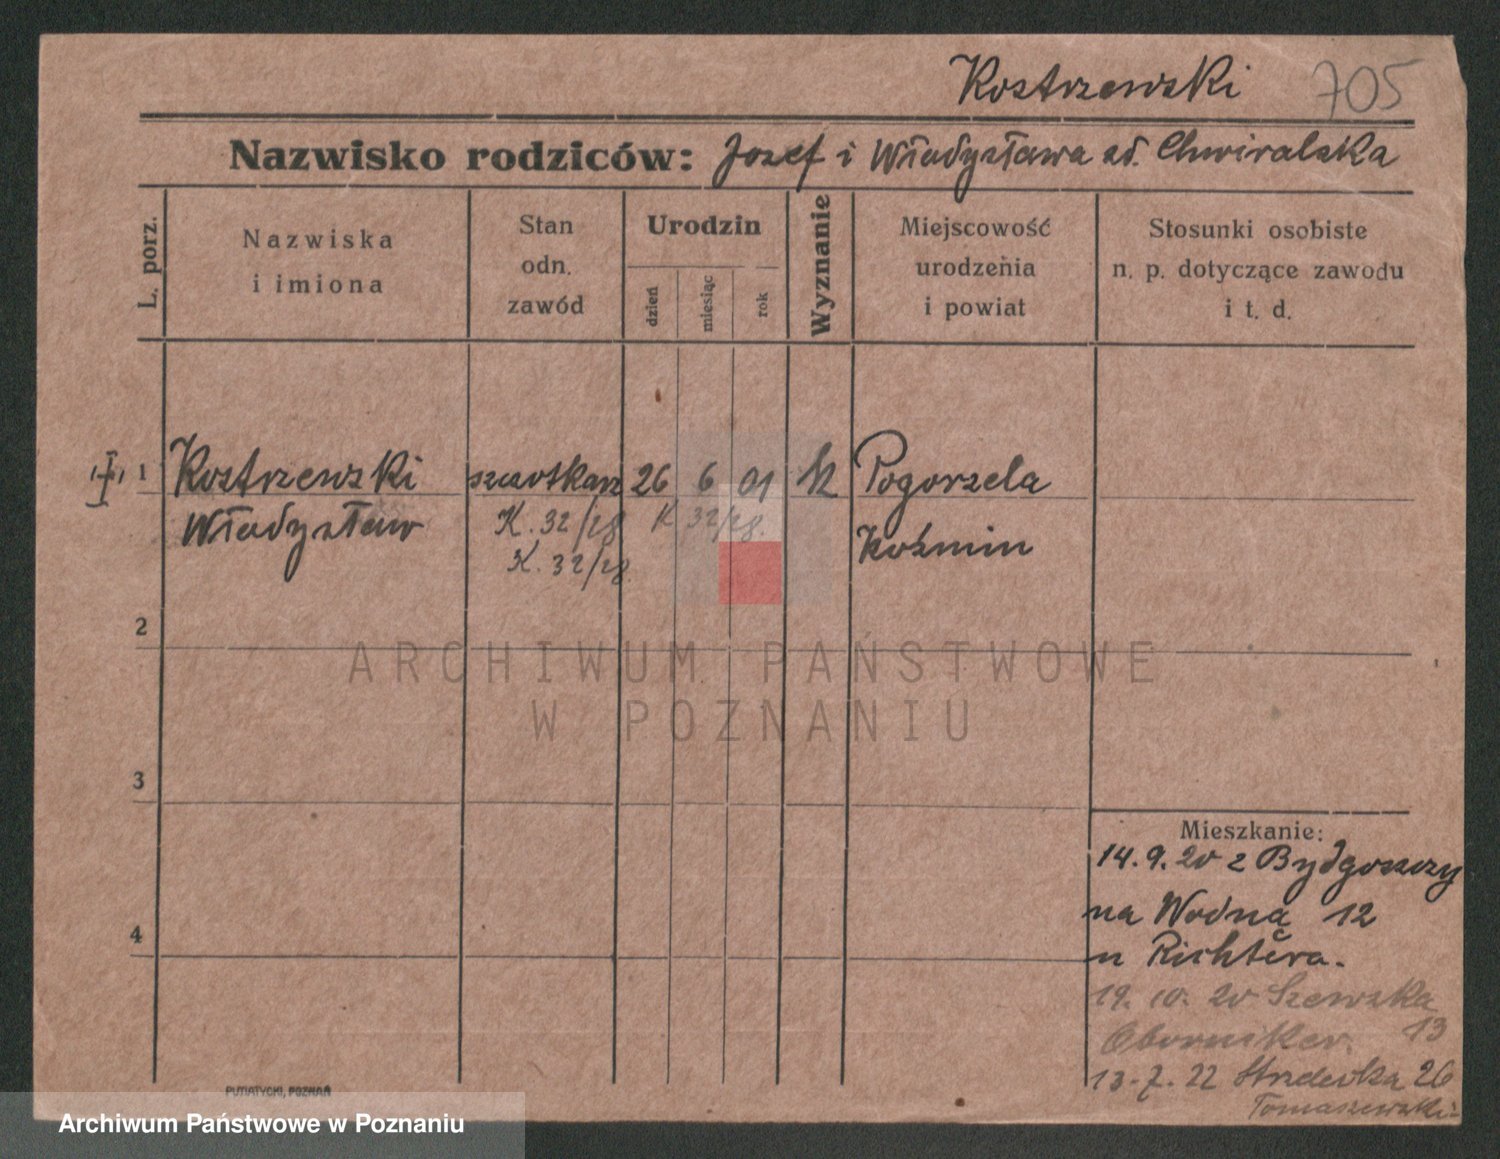 Kostrzewski 705
Nazwisko rodziców: Jozef i Władysława zd. Chwiralska
L. porz.
Nazwiska
i imiona
Stan
odn.
zawód
Urodzin
dzień
miesiąc
rok
Wyznanie
Miejscowość
urodzenia
i powiat
Stosunki osobiste
n. p. dotyczące zawodu
i t. d.
1 Kostrzewski szczotkarz 26 6 01 k Pogorzela
Władysław K. 32/28 K 32/28. Koźmin
K. 32/28.
2
ARCHIWUM PAŃSTWOWE
W POZNANIU
3
Mieszkanie:
14.9.20 z Bydgoszczy
na Wodną 12
4
u Richtera.
19. 10. 20 Szewska
13
13-7. 22 26
Tomaszewski
PUTIATYCKI, POZNAŃ
Archiwum Państwowe w Poznaniu